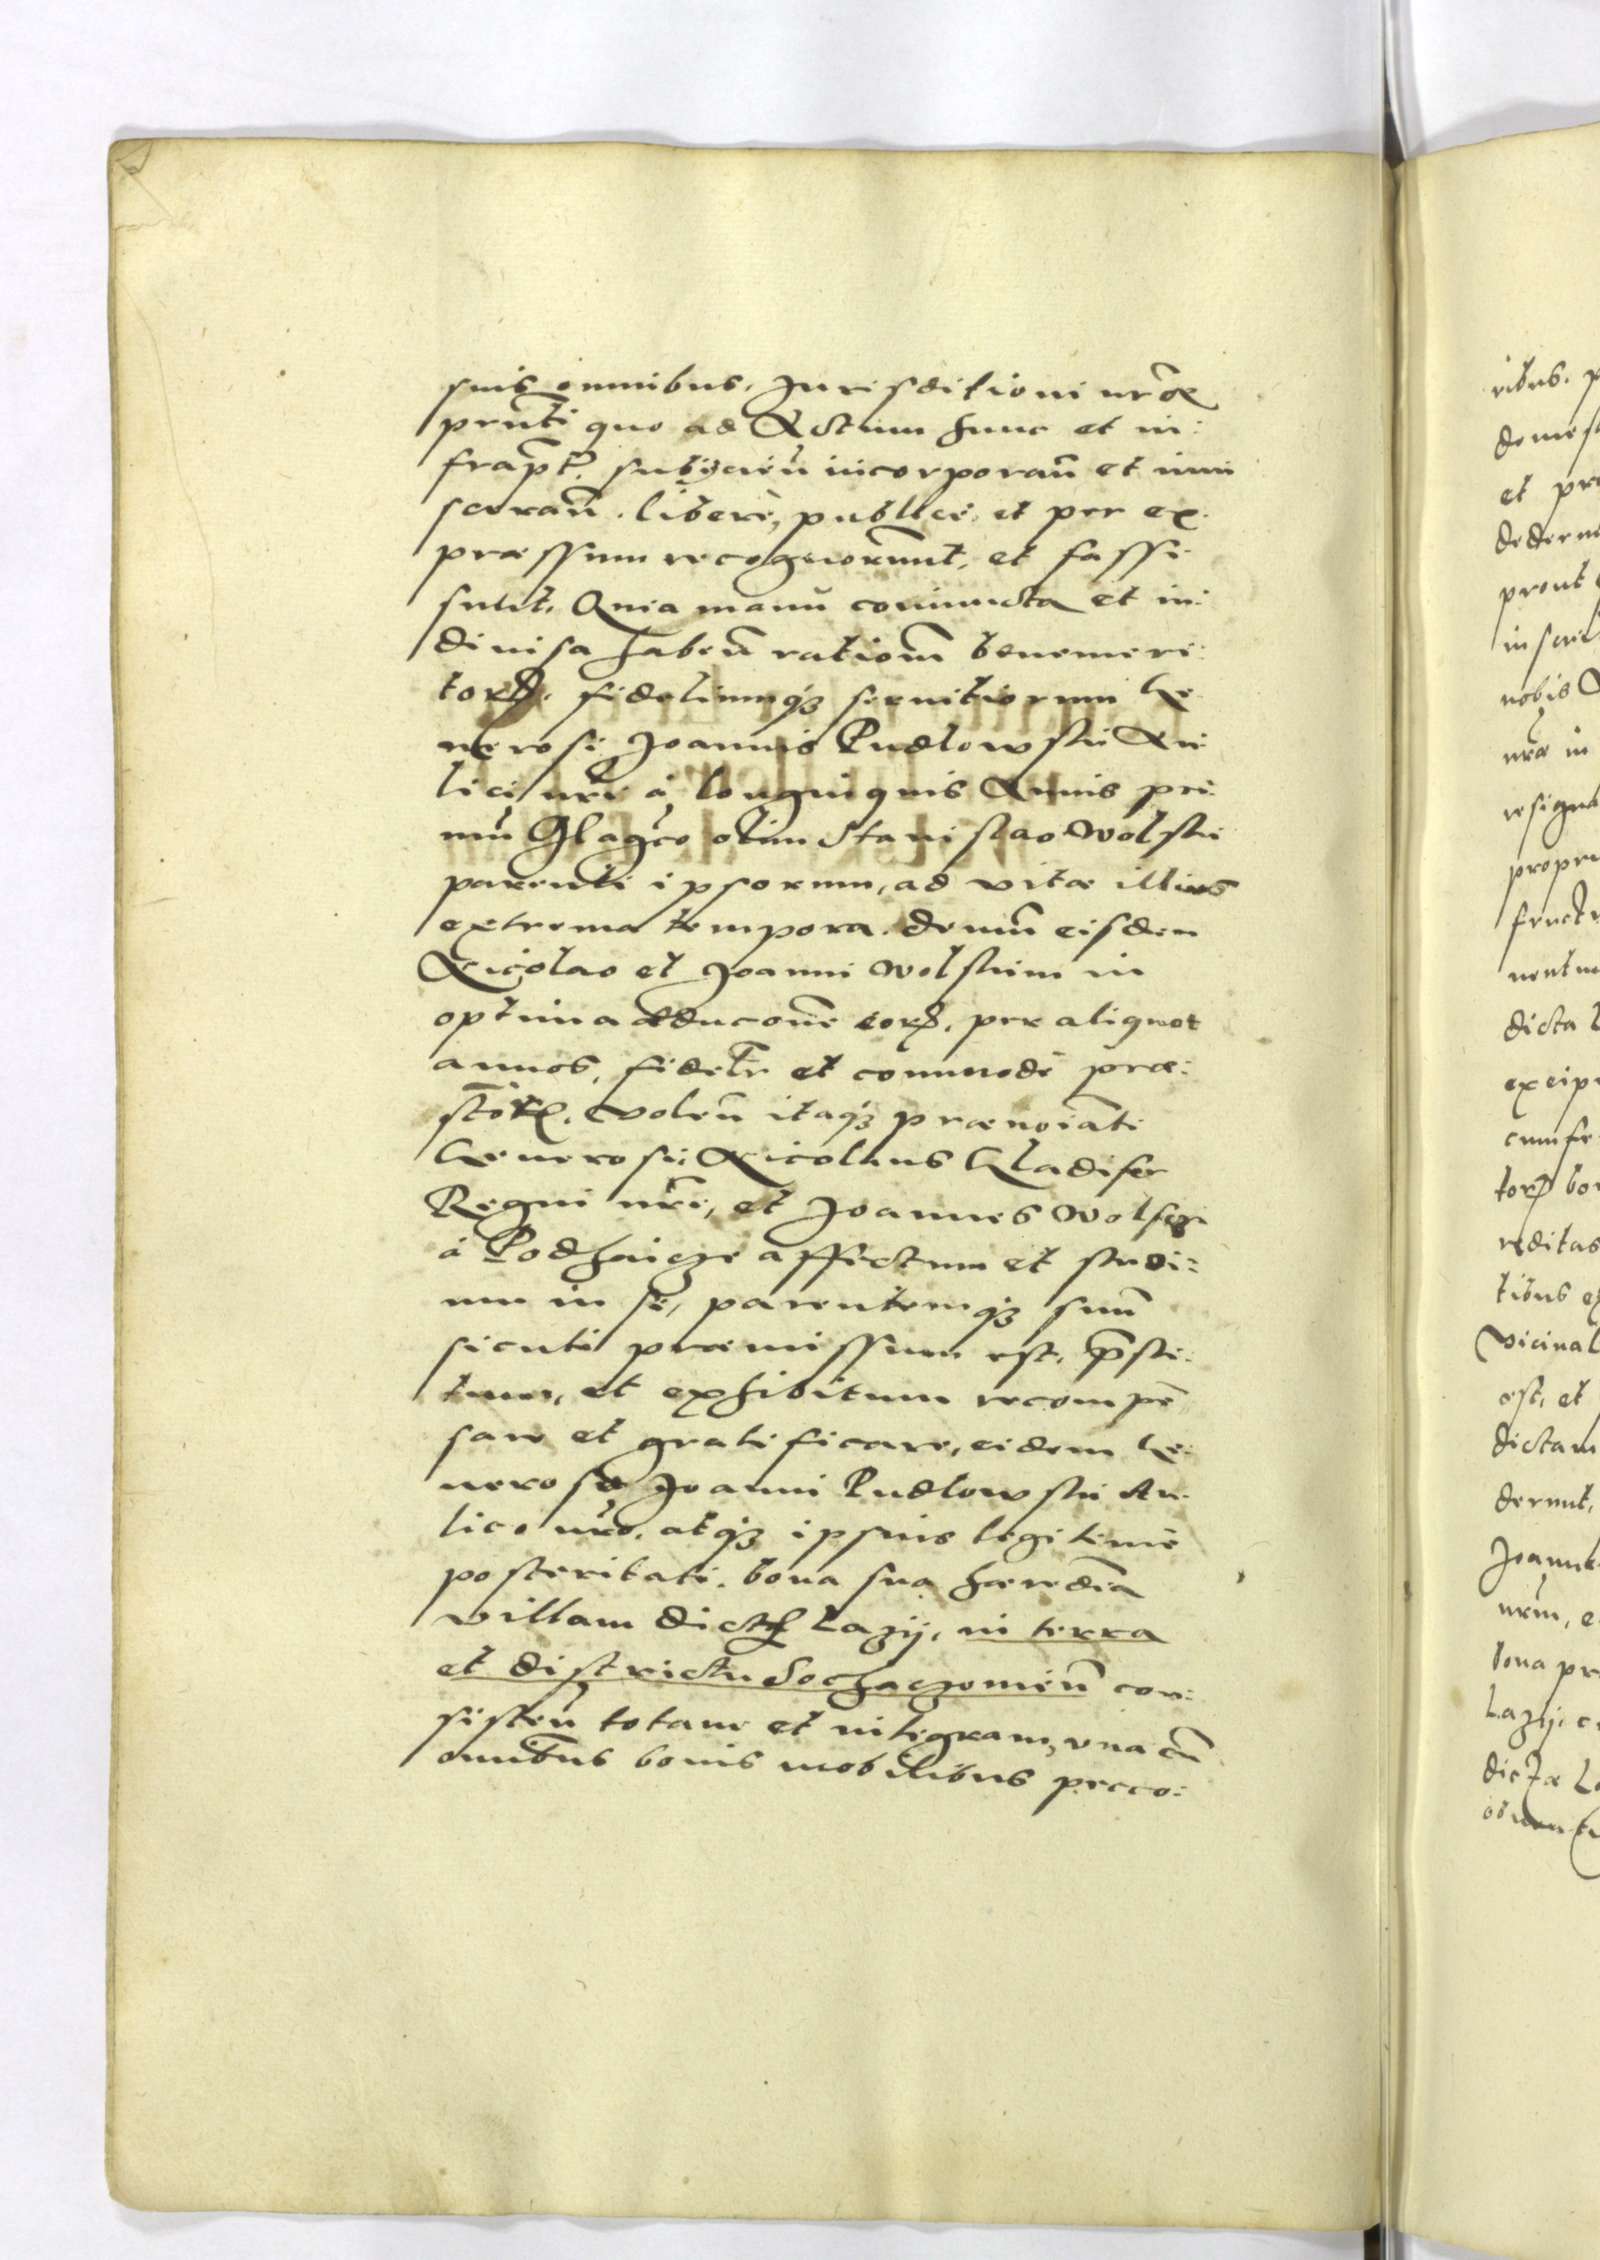 suis omnibus, Jurisditioni nr̃æ
pr̃nti quo ad Actum hunc et in:
frap̃t. subijcieñ incorporañ et inui
sceran̄. liberè, publicè, et per ex
præssum recognorunt, et fassi
sunt, Quia manu coniuncta et in:
diuisa habeñ rationem̃ benemeri:
torꝝ, fideliumqꝫ seruitiorum Ge
nerosi Joannis Pudlowski Au
lici nr̃i à longinquis Annis pri
mũ Mag̃co olim Stanislao Wolski
parenti ipsorum, ad vitæ illius
extrema tempora. demũ eisdem
Nicolao et Joanni Wolskim in
optima educõne eorꝝ, per aliquot
annos, fidelr̃ et commodè præ:
stitorꝝ. Volen̄ itaqꝫ prænoĩati
Generosi Nicolaus Gladifer
Regni nr̃i, et Joannes Wolski
à Podhaicze affectum et studi:
um in se, parentemqꝫ suũ
sicuti præmissum est, p̃sti:
tum, et exhibitum recompẽ
sare et gratificare, eidem Ge:
neroso Joanni Pudlowski Au
lico nr̃o, atqꝫ ipsius legitimè
posteritati, bona sua hæredia
villam dictã Lazÿ, in terra
et districtu Sochaczouien̄ con:
sisten̄ totam et integram, vna cũ
omĩbus bonis mobilibus pecco:
ribus. p
domest
et pr
dederun
prout
inscri
nobis
nr̃æ in
resigna
propri
fruct
uent
dicta
excipi
cum
torꝝ bo
reditas
tibus
Vicinal
est, et
dictam
derunt,
Joann
nr̃m, e
bona pr
Lazÿ, c
dictæ L